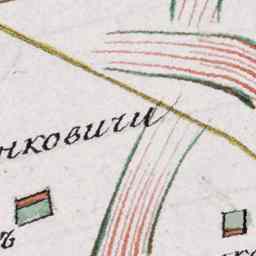 нковичи
ъ